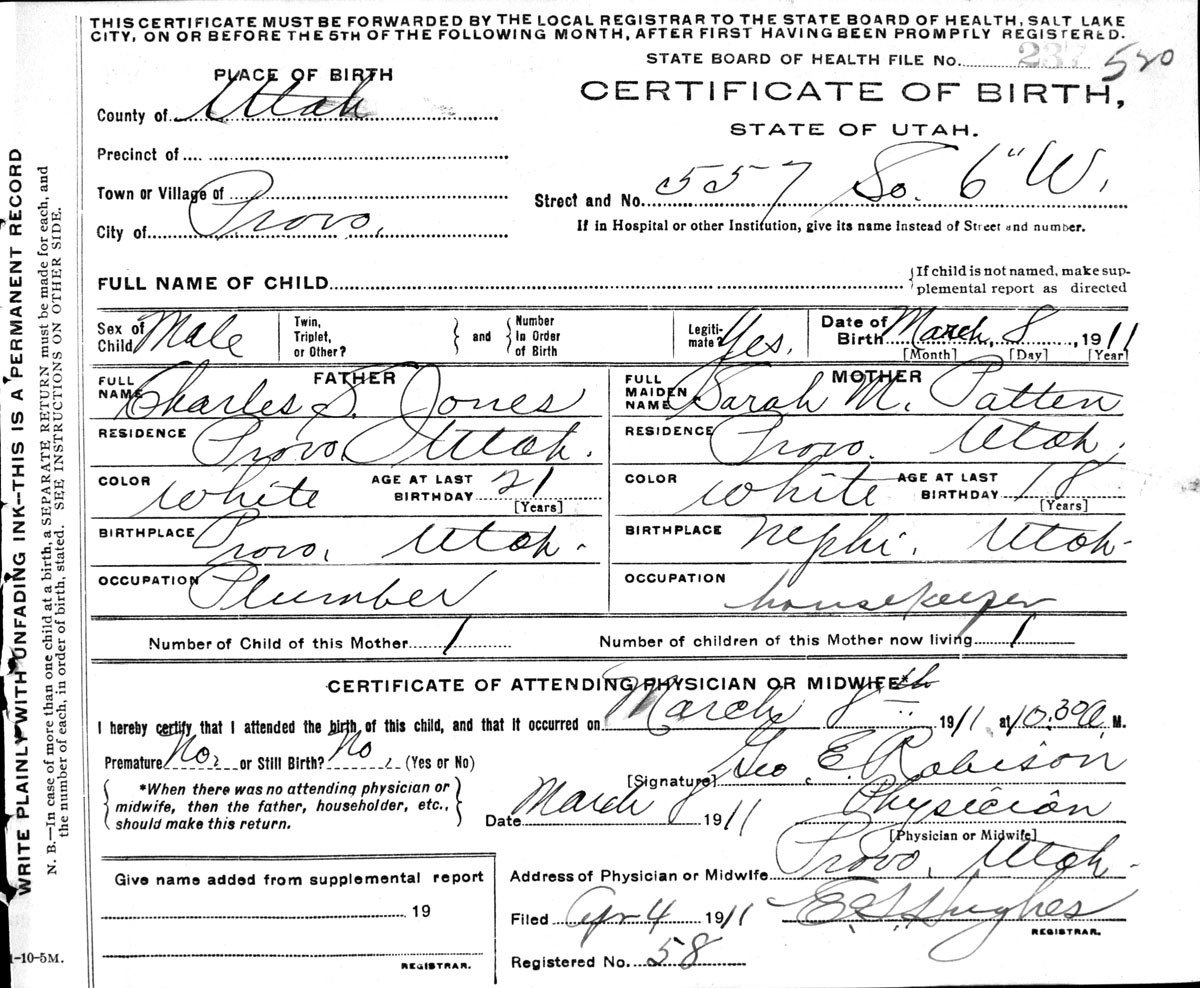 THIS CERTIFICATE MUST BE FORWARDED BY THE LOCAL REGISTRAR TO THE STATE BOARD OF HEALTH, SALT LAKE
CITY, ON OR BEFORE THE 5TH OF THE FOLLOWING MONTH, AFTER FIRST HAVING BEEN PROMPTLY REGISTERED.
STATE BOARD OF HEALTH FILE No. 237 520
PLACE OF BIRTH
CERTIFICATE OF BIRTH,
STATE OF UTAH.
County of Utah
Precinct of
Town or Village of
City of Provo.
Street and No. 557 So. 6" W.
If in Hospital or other Institution, give its name instead of Street and number.
FULL NAME OF CHILD
If child is not named, make sup-
plemental report as directed
Sex of Child Male
Twin, Triplet, or Other?
and
Number In Order of Birth
Legiti-mate? Yes.
Date of Birth March, 8, 1911
[Month] [Day] [Year]
FATHER
FULL NAME Charles S. Jones
RESIDENCE Provo. Utah.
COLOR White AGE AT LAST BIRTHDAY 21
[Years]
BIRTHPLACE Provo, Utah.
OCCUPATION Plumber
MOTHER
FULL MAIDEN NAME Sarah M. Patten
RESIDENCE Provo. Utah.
COLOR White AGE AT LAST BIRTHDAY 18
[Years]
BIRTHPLACE Nephi. Utah.
OCCUPATION housekeeper
Number of Child of this Mother 1 Number of children of this Mother now living 1
CERTIFICATE OF ATTENDING PHYSICIAN OR MIDWIFE*
I hereby certify that I attended the birth of this child, and that it occurred on March 8th 1911 at 10.30 a. M.
Premature No, or Still Birth? No, (Yes or No)
*When there was no attending physician or
midwife, then the father, householder, etc.,
should make this return.
[Signature] Geo. E. Robison
Date March 8 1911 Physician
[Physician or Midwife]
Address of Physician or Midwife Provo, Utah.
Filed Apr 4 1911 Hughes
REGISTRAR.
Registered No. 58
Give name added from supplemental report
19
REGISTRAR.
WRITE PLAINLY WITH UNFADING INK—THIS IS A PERMANENT RECORD
N. B.—In case of more than one child at a birth, a SEPARATE RETURN must be made for each, and
the number of each, in order of birth, stated. SEE INSTRUCTION ON OTHER SIDE.
1-10-5M.